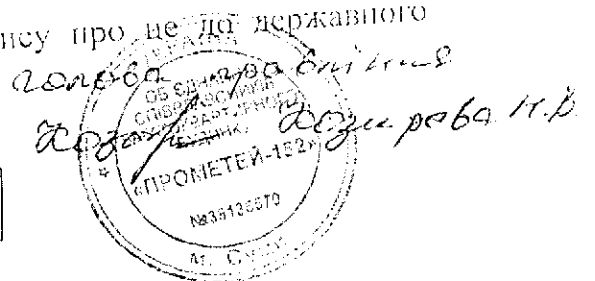 пису про це до державного
голова правління
Козирева Н.В
УКРАЇНА
ОБ'ЄДНАННЯ
СПІВВЛАСНИКІВ
БАГАТОКВАРТИРНОГО
БУДИНКУ
«ПРОМЕТЕЙ-152»
м. Суми